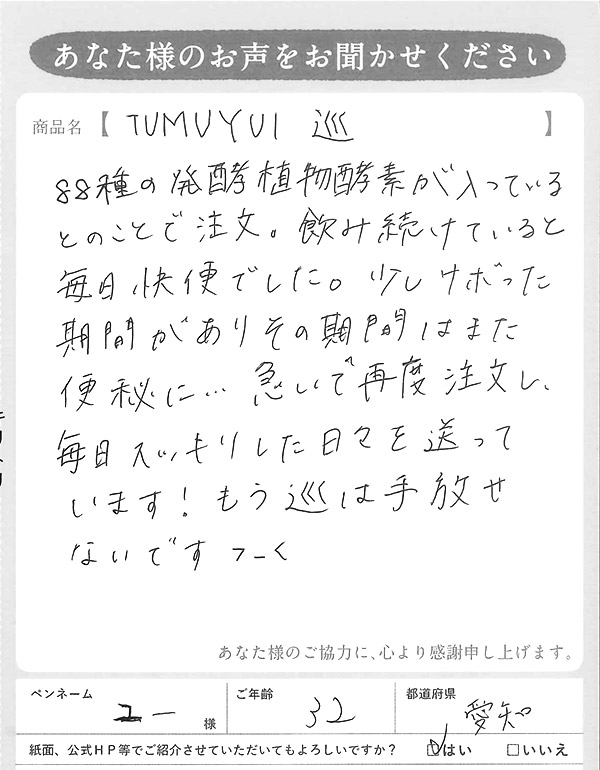 あなた様のお声をお聞かせください
商品名【 TUMUYUI 巡 】
88種の発酵植物酵素が入っている
とのことで注文。飲み続けていると
毎日快便でした。少しサボった
期間がありその期間はまた
便秘に… 急いで再度注文し、
毎日スッキリした日々を送って
います！もう巡は手放せ
ないです
あなた様のご協力に、心より感謝申し上げます。
ペンネーム ユー 様 ご年齢 32 都道府県 愛知
紙面、公式HP等でご紹介させていただいてもよろしいですか？ ☑はい □いいえ